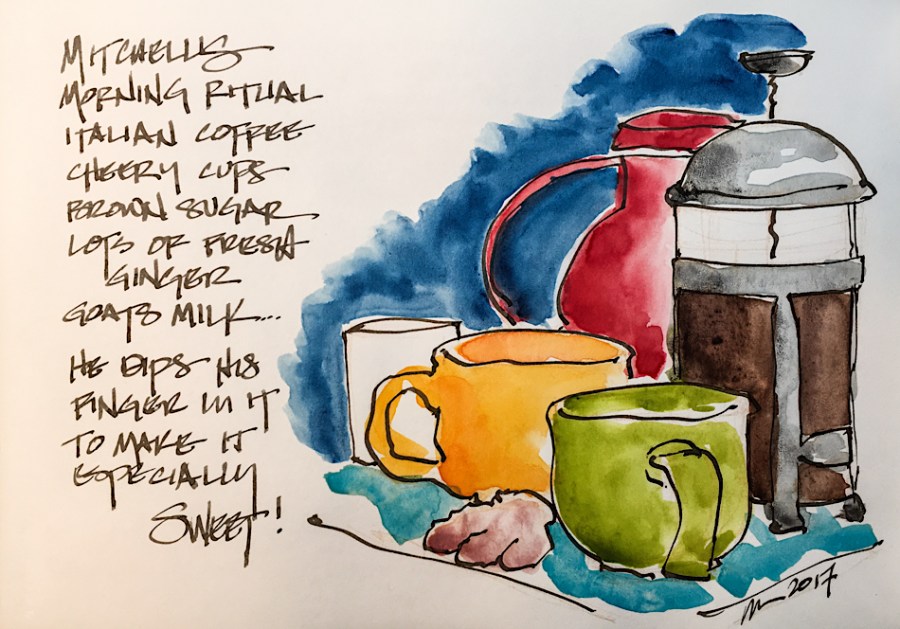 MITCHELLS
MORNING RITUAL
ITALIAN COFFEE
CHEERY CUPS
BROWN SUGAR
LOTS OF FRESH
GINGER
GOATS MILK...
HE DIPS HIS
FINGER IN IT
TO MAKE IT
ESPECIALLY
SWEET!
2017